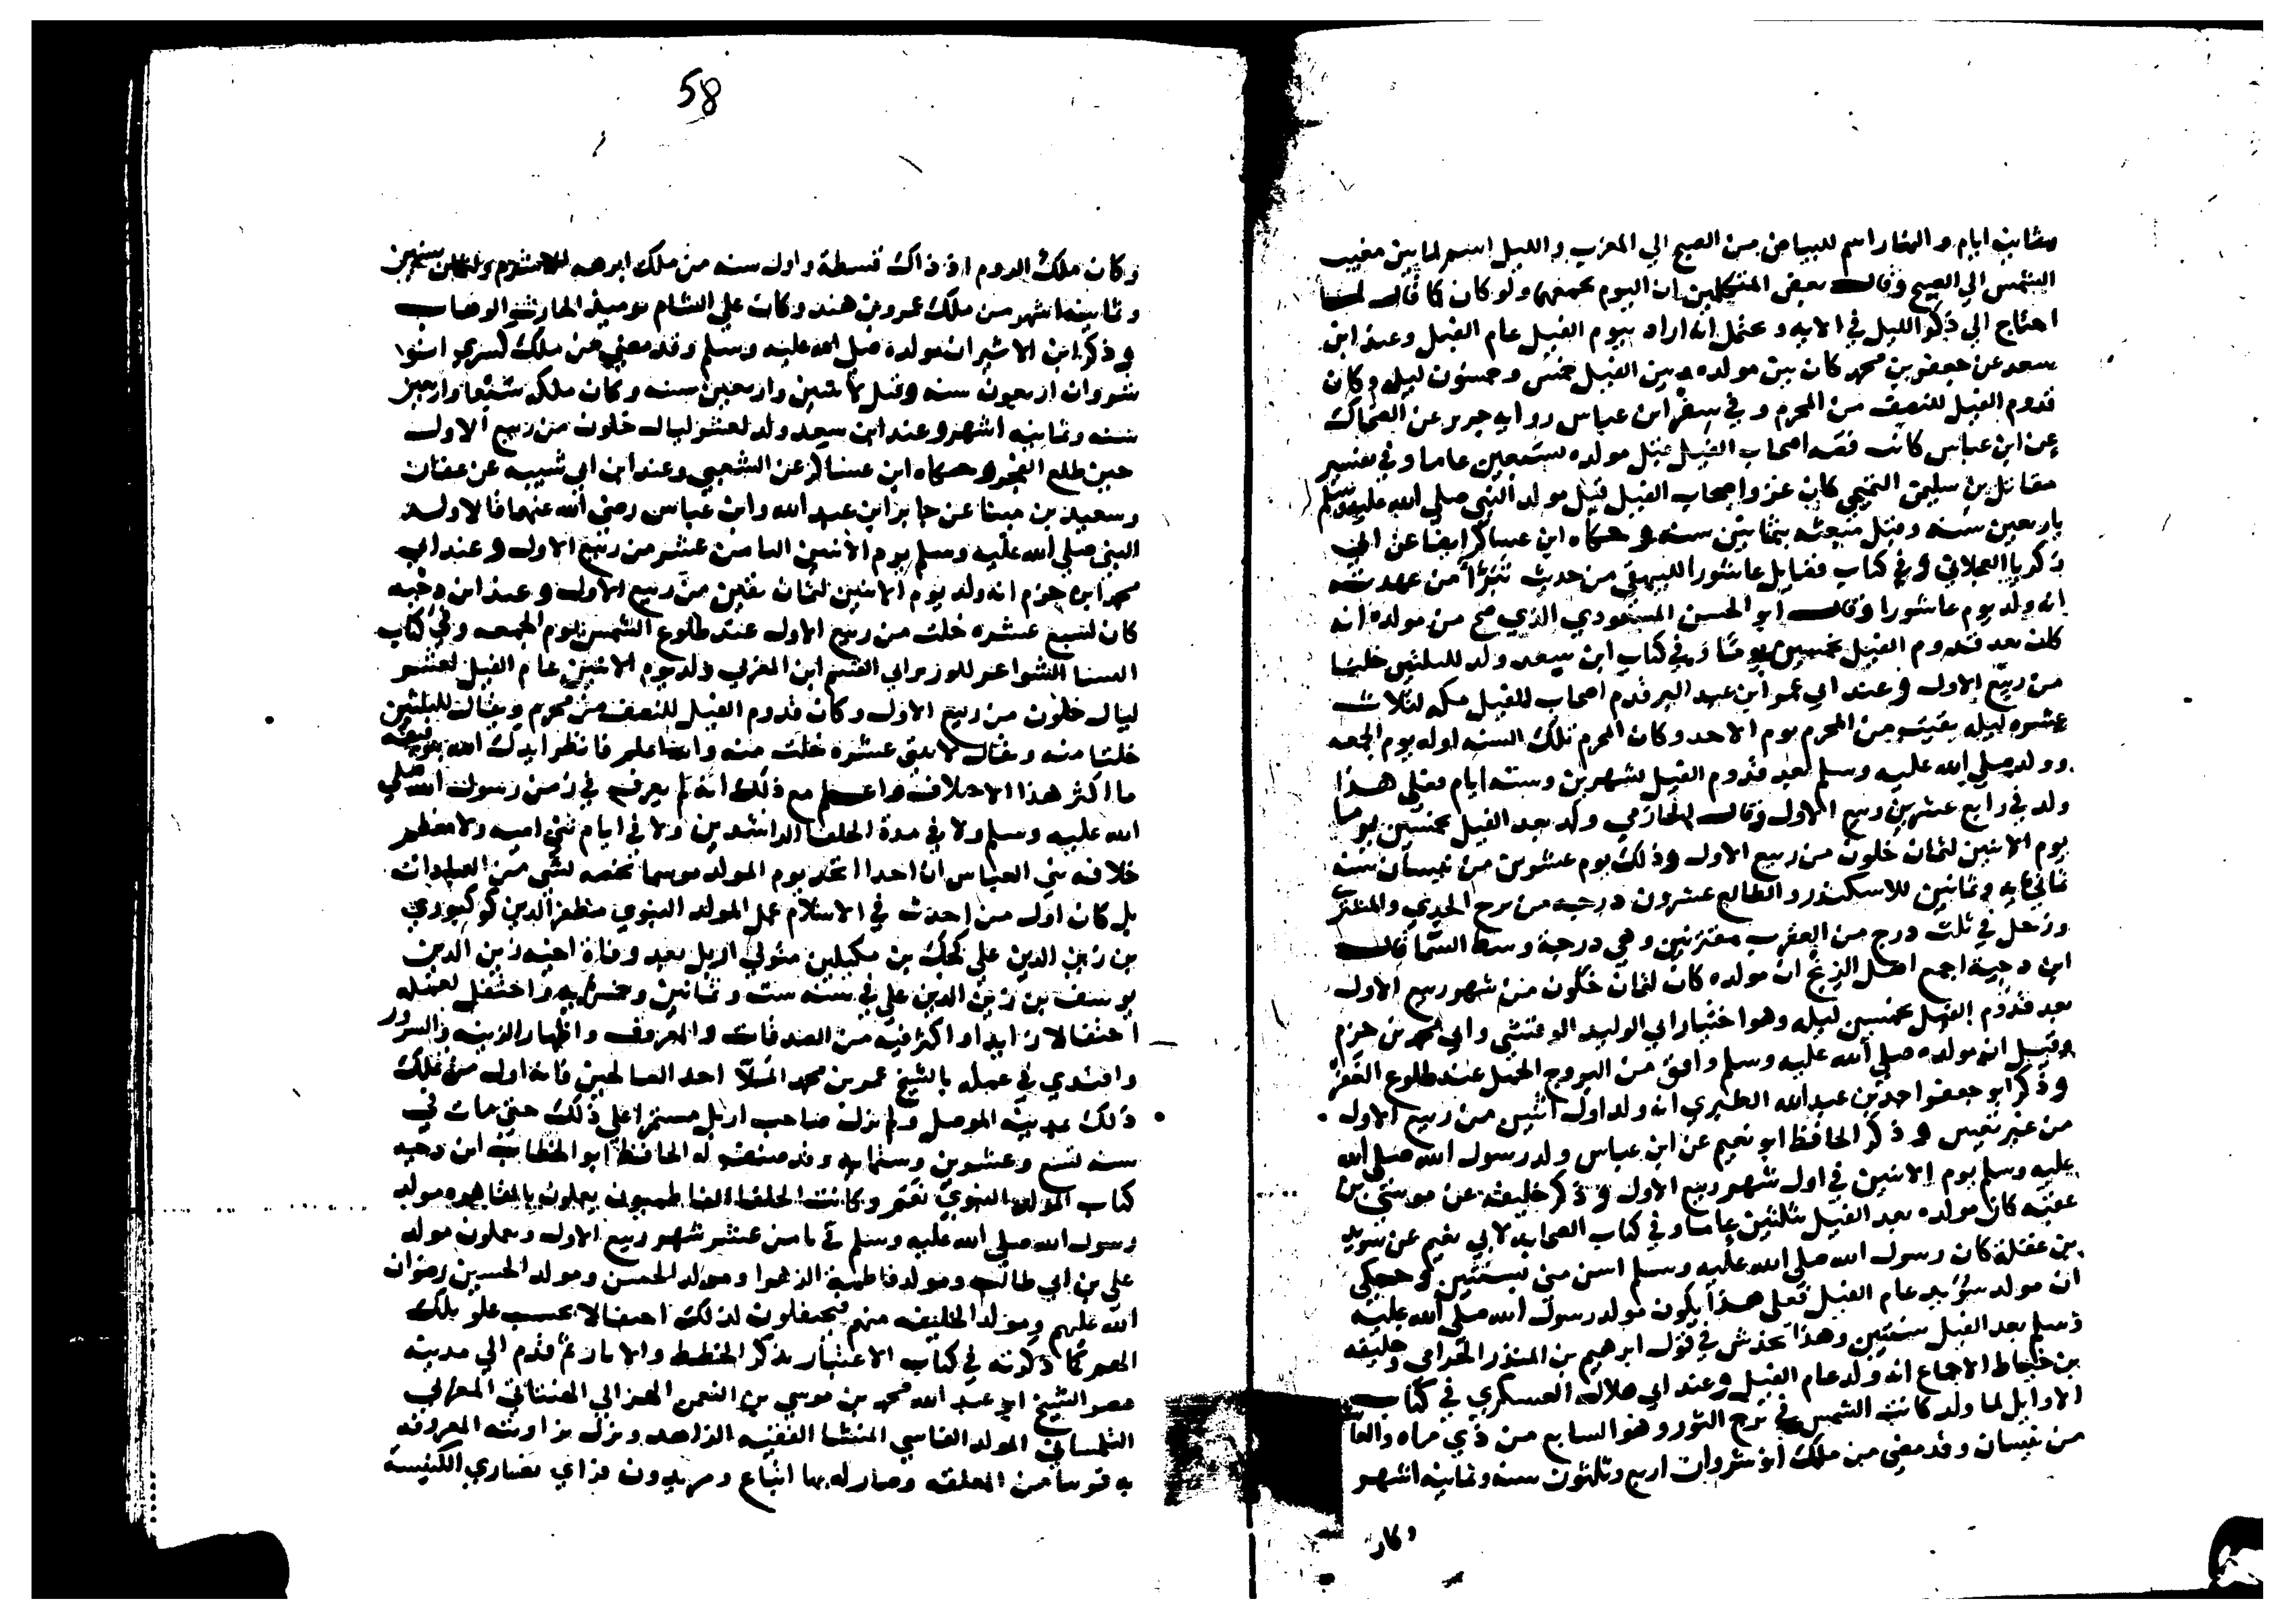 وثمانية ايام والنهار اسم للبياض من الصبح الي المغرب والليل اسم لما بين مغيب
الشمس الي الصبح وقال بعض المتكلمين ان اليوم يجمعهما ولو كان كما قال لما
احتاج الي ذكر الليل في الايه ويحتمل انه اراد بيوم الفيل عام الفيل وعند ابن
سعد عن جعفر بن محمد كان بين مولده وبين الفيل خمس وخمسون ليله وكان
قدوم الفيل للنصف من المحرم وفي ابن عباس روايه جرير عن الضحاك
عن ابن عباس كانت قصه اصحاب الفيل قبل مولده عاما وفي تفسير
مقاتل بن سليمن كان غزو اصحاب الفيل قبل مولد النبي صلي الله عليه وسلم
باربعين سنه وقبل مبعثه بثمانين سنه وحكاه ابن عساكر ايضا عن ابي
زكريا العجلاني وفي كتاب فضايل عاشورا للبيهقي من حديث تبرأ من عهدته
انه ولد يوم عاشورا وقال ابو الحسن المسعودي الذي صح من مولده انه
كان بعد قدوم الفيل بخمسين يوما وفي كتاب ابن سعد ولد لليلتين خلتا
من ربيع الاول وعند ابي عمر ابن عبد البر قدم اصحاب الفيل مكه لثلاث
عشره ليله بقيت من المحرم يوم الاحد وكان المحرم تلك السنه اوله يوم الجمعه
وولد صلي الله عليه وسلم بعد قدوم الفيل بشهرين وستة ايام فعلي هذا
ولد في رابع عشرين ربيع الاول وقال الخوارزمي ولد بعد الفيل بخمسين يوما
يوم الاثنين لثمان خلون من ربيع الاول وذلك يوم عشرين من نيسان سنة
ثماني مايه وثمانين للاسكندر والطالع عشرون درجه من برج الجدي والمشتري
وزحل في ثلث درج من العقرب مقترنين وهي درجة وسط السما قال
ابن دحية اجمع اهل الزيج ان مولده كان لثمان خلون من شهر ربيع الاول
بعد قدوم الفيل بخمسين ليله وهو اختيار ابي الوليد الوقشي وابي محمد بن حزم
وقيل ان مولده صلي الله عليه وسلم وافق من البروج الحمل عند طلوع الغفر
وذكر ابو جعفر احمد بن عبد الله الطبري انه ولد اول اثنين من ربيع الاول
من غير تعيين وذكر الحافظ ابو نعيم عن ابن عباس ولد رسول الله صلي الله
عليه وسلم يوم الاثنين في اول شهر ربيع الاول وذكر خليفه عن موسي بن
عقبه كان مولده بعد الفيل بثلثين عاما وفي كتاب الصحابه لابي نعيم عن سويد
بن غفلة كان رسول الله صلي الله عليه وسلم اسن مني بسنتين وحكي
ان مولد سويد عام الفيل فعلي هذا يكون مولد رسول الله صلي الله عليه
وسلم بعد الفيل سنتين وهذا يخدش في قول ابرهيم بن المنذر الحزامي وخليفه
بن خياط الاجماع انه ولد عام الفيل وعند ابي هلال العسكري في كتاب
الاوايل لما ولد كانت الشمس في برج الثور وهو السابع من ذي ماه والعا
من نيسان وقد مضي من ملك انوشروان اربع وثلثون سنه وثمانيه اشهر
وكان
58
وكان ملك الروم اذ ذاك قسطة واول سنه من ملك ابرهه الاشرم
وثمانيه اشهر من ملك عمرو بن هند وكان علي الشام يوميذ الحارث الوصاب
وذكر ابن الاثير ان مولده صلي الله عليه وسلم وقد مضي من ملك كسري انو
شروان اربعون سنه وقيل ثنتين واربعين سنه وكان ملكه سبعا واربعين
سنه وثمانيه اشهر وعند ابن سعد ولد لعشر ليال خلون من ربيع الاول
حين طلع الفجر وحكاه ابن عساكر عن الشعبي وعند ابن ابي شيبه عن عفان
وسعيد بن مينا عن جابر ابن عبد الله وابن عباس رضي الله عنهما قالا ولد
النبي صلي الله عليه وسلم يوم الاثنين الثامن عشر من ربيع الاول وعند ابي
محمد ابن حزم انه ولد يوم الاثنين لثمان بقين من ربيع الاول وعند ابن دحيه
كان لسبع عشره خلت من ربيع الاول عند طلوع الشمس يوم الجمعه وفي كتاب
السنا الشواعر للوزير ابي القسم ابن المغربي ولد يوم الاثنين عام الفيل لعشر
ليال خلون من ربيع الاول وكان قدوم الفيل للنصف من محرم ويقال لليلتين
خلتا منه ويقال لاثنتي عشره خلت منه والله اعلم فانظر ايدك الله بتوفيقه
ما اكثر هذا الاختلاف واعلم مع ذلك انه لم يعرف في زمن رسول الله صلي
الله عليه وسلم ولا في مدة الخلفا الراشدين ولا في ايام بني اميه ولا معظم
خلافه بني العباس ان احدا اتخذ يوم المولد موسما يخصه بشي من العبادات
بل كان اول من احدث في الاسلام عمل المولد النبوي مظفر الدين كوكبوري
بن زين الدين علي كجك بن بكتكين متولي اربل بعد وفاة اخيه زين الدين
يوسف بن زين الدين علي في سنه ست وثمانين وخمس مايه واحتفل لعمله
احتفالا زايدا واكثر فيه من الصدقات والمعروف واظهار الزينه والسرور
واقتدي في عمله بالشيخ عمر بن محمد الملا احد الصالحين فانه اول من
ذلك بمدينة الموصل ولم يزل صاحب اربل مستمرا علي ذلك حتي مات في
سنه تسع وعشرين وستمايه وقد صنف له الحافظ ابو الخطاب ابن دحيه
كتاب المولد النبوي نعم وكانت الخلفا الفاطميون يعملون بالقاهره مولد
رسول الله صلي الله عليه وسلم في ثامن عشر شهر ربيع الاول ويعملون مولد
علي بن ابي طالب ومولد فاطمة الزهرا ومولد الحسن ومولد الحسين رضوان
الله عليهم ومولد الخليفه منهم فيحتفلون لذلك احتفالا بحسب علو تلك
الهمم كما ذكرته في كتاب الاعتبار بذكر الخطط والاثار ثم قدم الي مدينة
مصر الشيخ ابو عبد الله محمد بن موسي بن النعمن الهزالي الهنتاتي المغربي
التلمساني المولد الفاسي المنشا الفقيه الزاهد ونزل بزاويته المعروفه
به قريبا من المعلقه وصار له بها اتباع ومريدون فراي نصاري الكنيسة